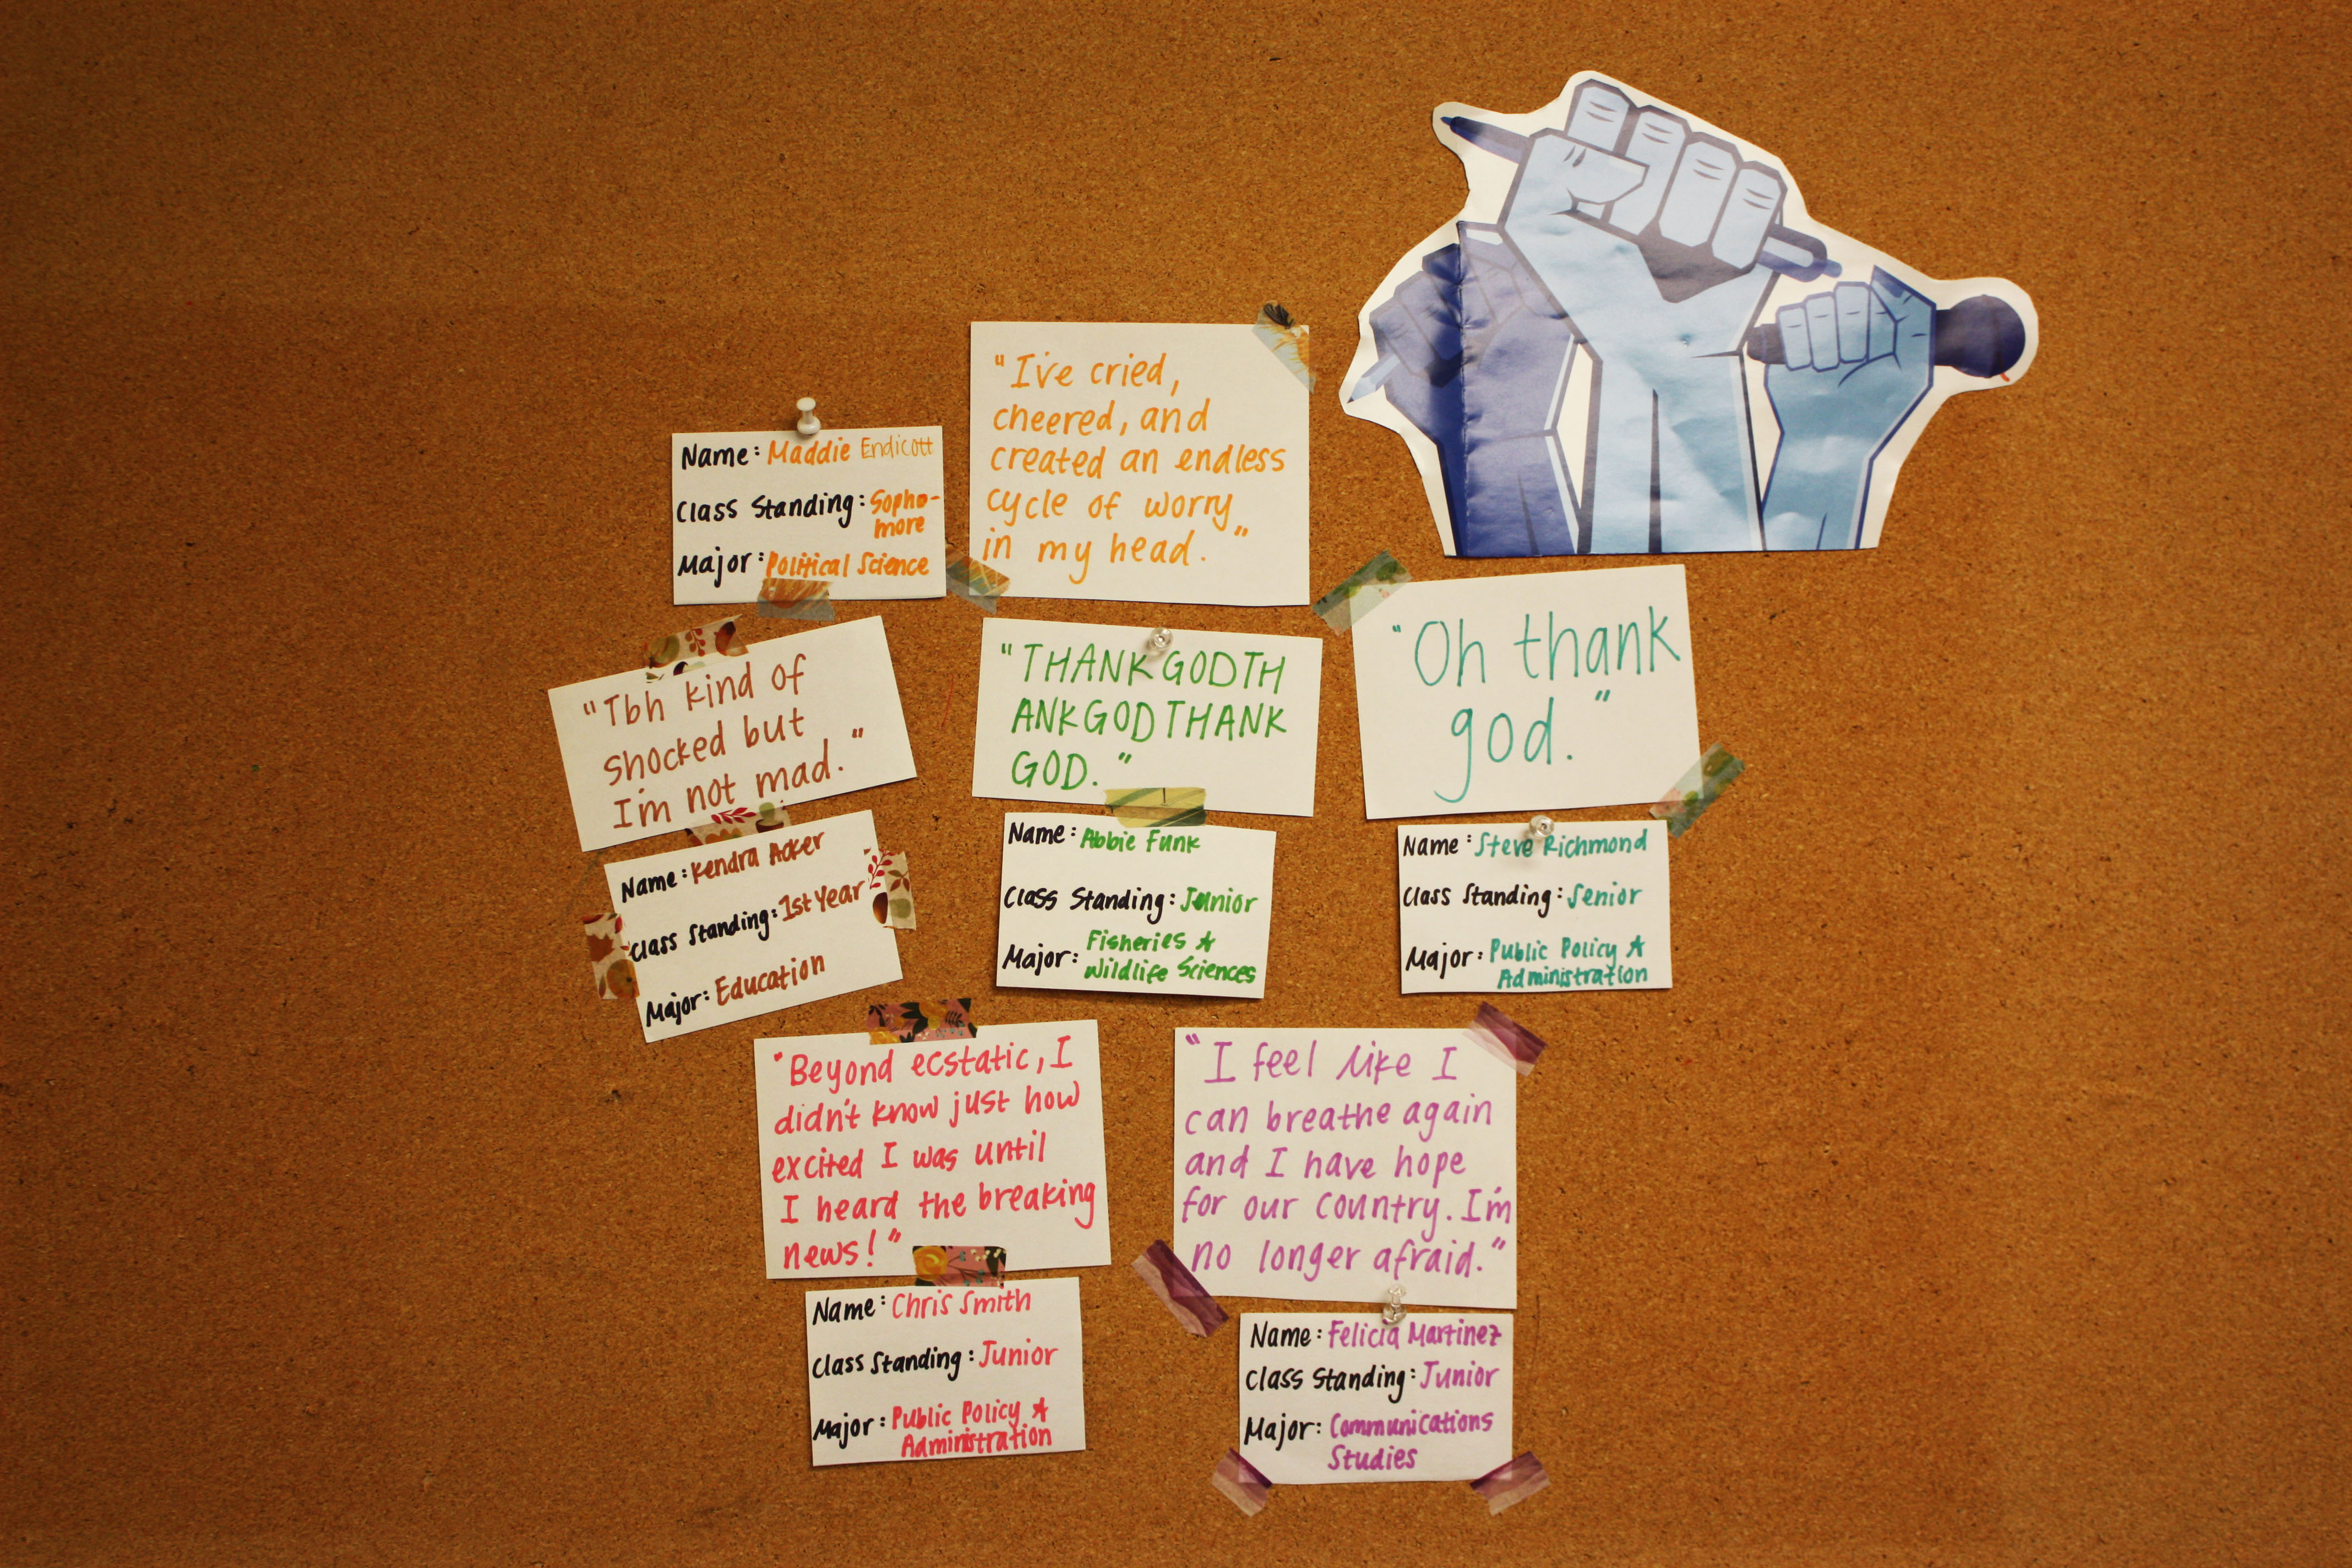 Name: Maddie Endicott
Class Standing: Sopho-
more
Major: Political Science
"I've cried,
cheered, and
created an endless
cycle of worry
in my head."
"Tbh kind of
shocked but
I'm not mad."
Name: Kendra Acker
Class Standing: 1st Year
Major: Education
"THANKGODTH
ANKGODTHANK
GOD."
Name: Abbie Funk
Class Standing: Junior
Major: Fisheries &
Wildlife Sciences
"Oh thank
god."
Name: Steve Richmond
Class Standing: Senior
Major: Public Policy &
Administration
"Beyond ecstatic, I
didn't know just how
excited I was until
I heard the breaking
news!"
Name: Chris Smith
Class Standing: Junior
Major: Public Policy &
Administration
"I feel like I
can breathe again
and I have hope
for our country. I'm
no longer afraid."
Name: Felicia Martinez
Class Standing: Junior
Major: Communications
Studies